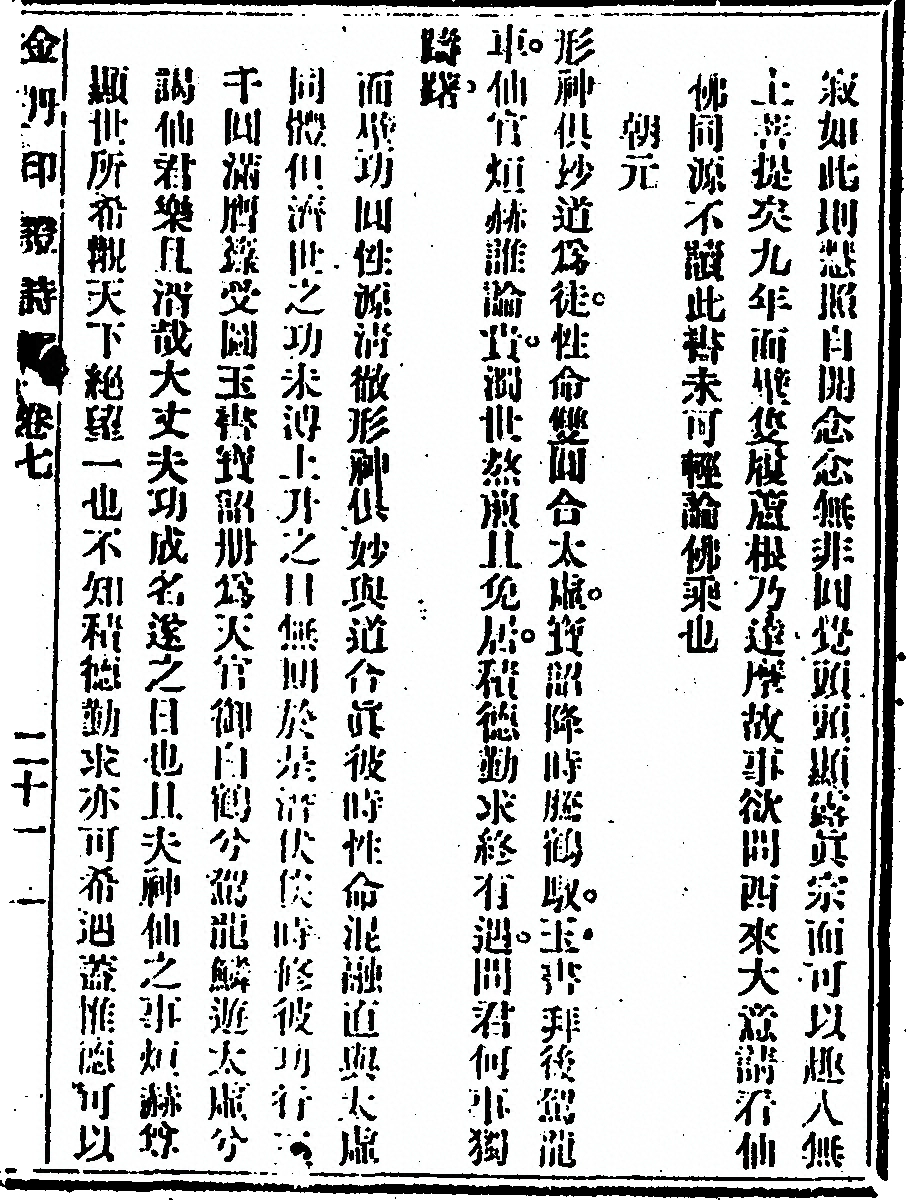 寂如此則慧照自開念念無非圓覺頭頭顯露眞宗而可以趣入無
上菩提矣九年而壁隻履蘆根乃達摩故事欲問西來大意請看仙
佛同源不讀此書未可輕論佛乘也
朝元
形神俱妙道爲徒性命雙圓合太虛寶詔降時騰鶴馭玉書拜後駕龍
車仙官烜赫誰論貴濁世熬煎且免居積德勤求終有遇問君何事獨
躊躇
面壁功圓性源清徹形神俱妙與道合眞彼時性命混融直與太虛
同體但濟世之功未溥上升之日無期於是潛伏俟時修彼功行三
千圓滿膺籙受圖玉書寶詔册爲天官御白鶴兮駕龍鱗遊太虛兮
謁仙君樂且湑哉大丈夫功成名遂之日也且夫神仙之事烜赫尊
顯世所希覯天下絕望一也不知積德勤求亦可希遇蓋惟德可以
金丹印證詩 卷七 二十一